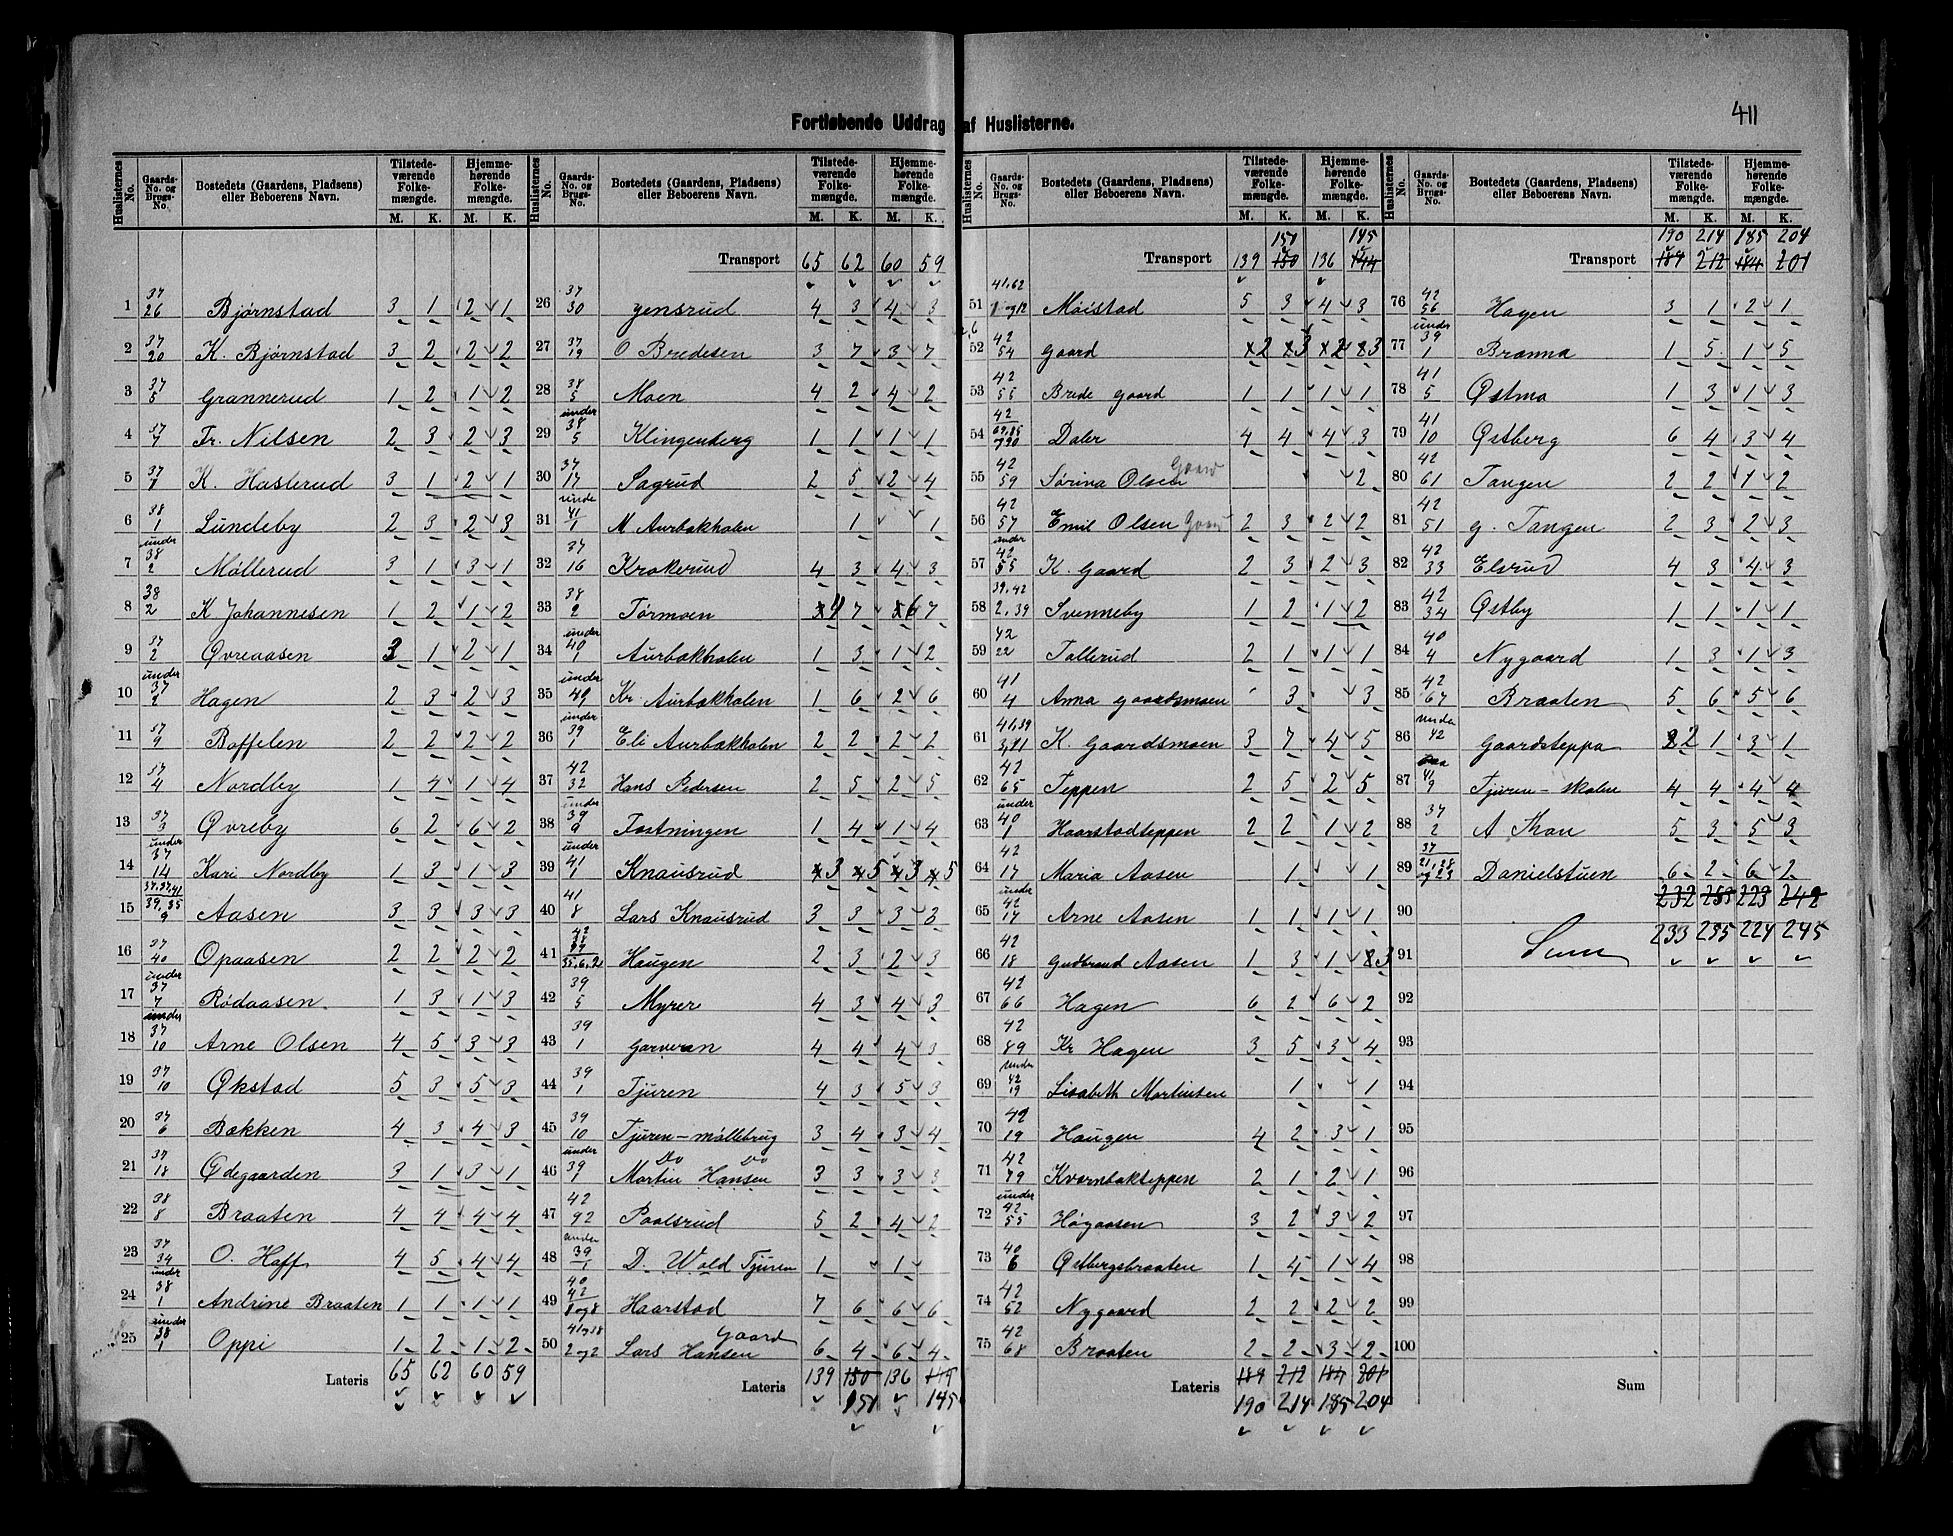 411
Fortløbende Uddrag af Huslisterne.
Huslisternes No. Gaards-No. og Brugs-No. Bostedets (Gaardens, Pladsens) eller Beboerens Navn. Tilstedeværende Folkemængde. M. K. Hjemmehørende Folkemængde. M. K.
1 37 26 Bjørnstad 3 1 2 1
2 37 20 K. Bjørnstad 3 2 2 2
3 37 5 Grannerud 1 2 1 2
4 37 7 Fr. Nilsen 2 3 2 3
5 37 7 K. Haslerud 3 1 2 1
6 38 1 Lundeby 2 3 2 3
7 under 38 2 Møllerud 3 1 3 1
8 38 2 K Johannesen 1 2 1 2
9 37 2 Øvreaasen 3 1 2 1
10 under 37 2 Hagen 2 3 2 3
11 37 9 Boffelen 2 2 2 2
12 37 4 Nordby 1 4 1 4
13 37 3 Øvreby 6 2 6 2
14 under 37 14 Kari Nordby 1 3 1 3
15 Aasen 3 3 3 3
16 37 40 Opaasen 2 2 2 2
17 under 37 7 Rødaasen 1 3 1 3
18 under 37 10 Arne Olsen 4 5 3 3
19 37 10 Økstad 5 3 5 3
20 37 6 Bakken 4 3 4 3
21 37 18 Ødegaarden 3 1 3 1
22 38 8 Braaten 4 4 4 4
23 37 34 O. Haff 4 5 4 4
24 under 38 1 Andrine Braaten 1 1 1 1
25 under 38 1 Oppi 1 2 1 2
Lateris 65 62 60 59
Huslisternes No. Gaards-No. og Brugs-No. Bostedets (Gaardens, Pladsens) eller Beboerens Navn. Tilstedeværende Folkemængde. M. K. Hjemmehørende Folkemængde. M. K.
Transport 65 62 60 59
26 37 30 Jensrud 4 3 4 3
27 37 19 O Bredesen 3 7 3 7
28 38 5 Moen 4 2 4 2
29 under 38 5 Klingenberg 1 1 1 1
30 37 17 Sagrud 2 5 2 4
31 under 41 1 M Aurbakholen 1 1
32 37 16 Krokerud 4 3 4 3
33 38 2 Tørmoen 4 7 6 7
34 under 40 1 Aurbakholen 1 3 1 2
35 under 49 Kr. Aurbakholen 1 6 2 6
36 under 39 1 Eli Aurbakholen 2 2 2 2
37 42 32 Hans Pedersen 2 5 2 5
38 under 39 9 Fastningen 1 4 1 4
39 under 41 1 Knausrud 3 5 3 5
40 41 8 Lars Knausrud 3 3 3 3
41 Haugen 2 3 2 3
42 39 5 Myrer 4 3 4 3
43 39 1 Garveran 4 4 4 3
44 39 1 Tjuren 4 3 5 3
45 39 10 Tjuren-møllebrug 3 4 3 4
46 under 39 1 Do Do Martin Hansen 3 3 3 3
47 42 92 Paalsrud 5 2 4 2
48 under 39 1 D. Wold Tjuren 1 1
49 40 42 8 og 8 Haarstad 7 6 6 6
50 2 og 2 Lars Hansen Gaard 6 4 6 4
Lateris 139 150 136 145
151 145
Huslisternes No. Gaards-No. og Brugs-No. Bostedets (Gaardens, Pladsens) eller Beboerens Navn. Tilstedeværende Folkemængde. M. K. Hjemmehørende Folkemængde. M. K.
151 145
Transport 139 150 136 144
51 41, 62 Moistad 5 3 4 3
52 42 54 Gaard 2 3 2 3
53 42 55 Brede Gaard 1 1 1 1
54 42 Daler 4 4 4 3
55 42 59 Sørina Olsen Gaard 2
56 42 57 Emil Olsen Gaard 2 3 2 2
57 under 42 55 K. Gaard 2 3 2 3
58 39, 42 2, 39 Svenneby 1 2 1 2
59 42 22 Tollerud 2 1 1 1
60 41 4 Anna Gaardsmoen 3 3
61 41, 39 3, 21 K. Gaardsmoen 3 7 4 5
62 42 65 Teppen 2 5 2 5
63 under 40 1 Haarstadteppen 2 2 1 2
64 42 17 Maria Aasen 1 1
65 under 42 17 Arne Aasen 1 1 1 1
66 42 18 Gudbrand Aasen 1 3 1 3
67 42 66 Hagen 6 2 6 2
68 42 89 Kr Hagen 3 5 3 4
69 under 42 19 Lisabeth Martinsen 1 1
70 42 19 Haugen 4 2 3 1
71 42 79 Kvornbakteppen 2 1 2 1
72 under 42 55 Høgaasen 3 2 3 2
73 40 6 Østbergsbraaten 1 4 1 4
74 42 52 Nygaard 2 2 2 2
75 42 68 Braaten 2 2 3 2
Lateris 189 212 184 201
190 214 185 204
Huslisternes No. Gaards-No. og Brugs-No. Bostedets (Gaardens, Pladsens) eller Beboerens Navn. Tilstedeværende Folkemængde. M. K. Hjemmehørende Folkemængde. M. K.
190 214 185 204
Transport 189 212 184 201
76 42 56 Hagen 3 1 2 1
77 under 39 1 Branna 1 5 1 5
78 41 5 Østmo 1 3 1 3
79 41 10 Østberg 6 4 3 4
80 42 61 Tangen 2 2 1 2
81 42 51 G. Tangen 2 3 2 3
82 42 33 Elsrud 4 3 4 3
83 42 34 Østby 1 1 1 1
84 40 4 Nygaard 1 3 1 3
85 42 67 Braaten 5 6 5 6
86 under 42 Gaardsteppa 2 1 3 1
87 41 9 Tjuren-skolen 4 4 4 4
88 37 2 A Thon 5 3 5 3
89 37 21, 28 og 23 Danielstuen 6 2 6 2
232 258 223 242
90
Sum 233 255 224 245
91
92
93
94
95
96
97
98
99
100
Sum